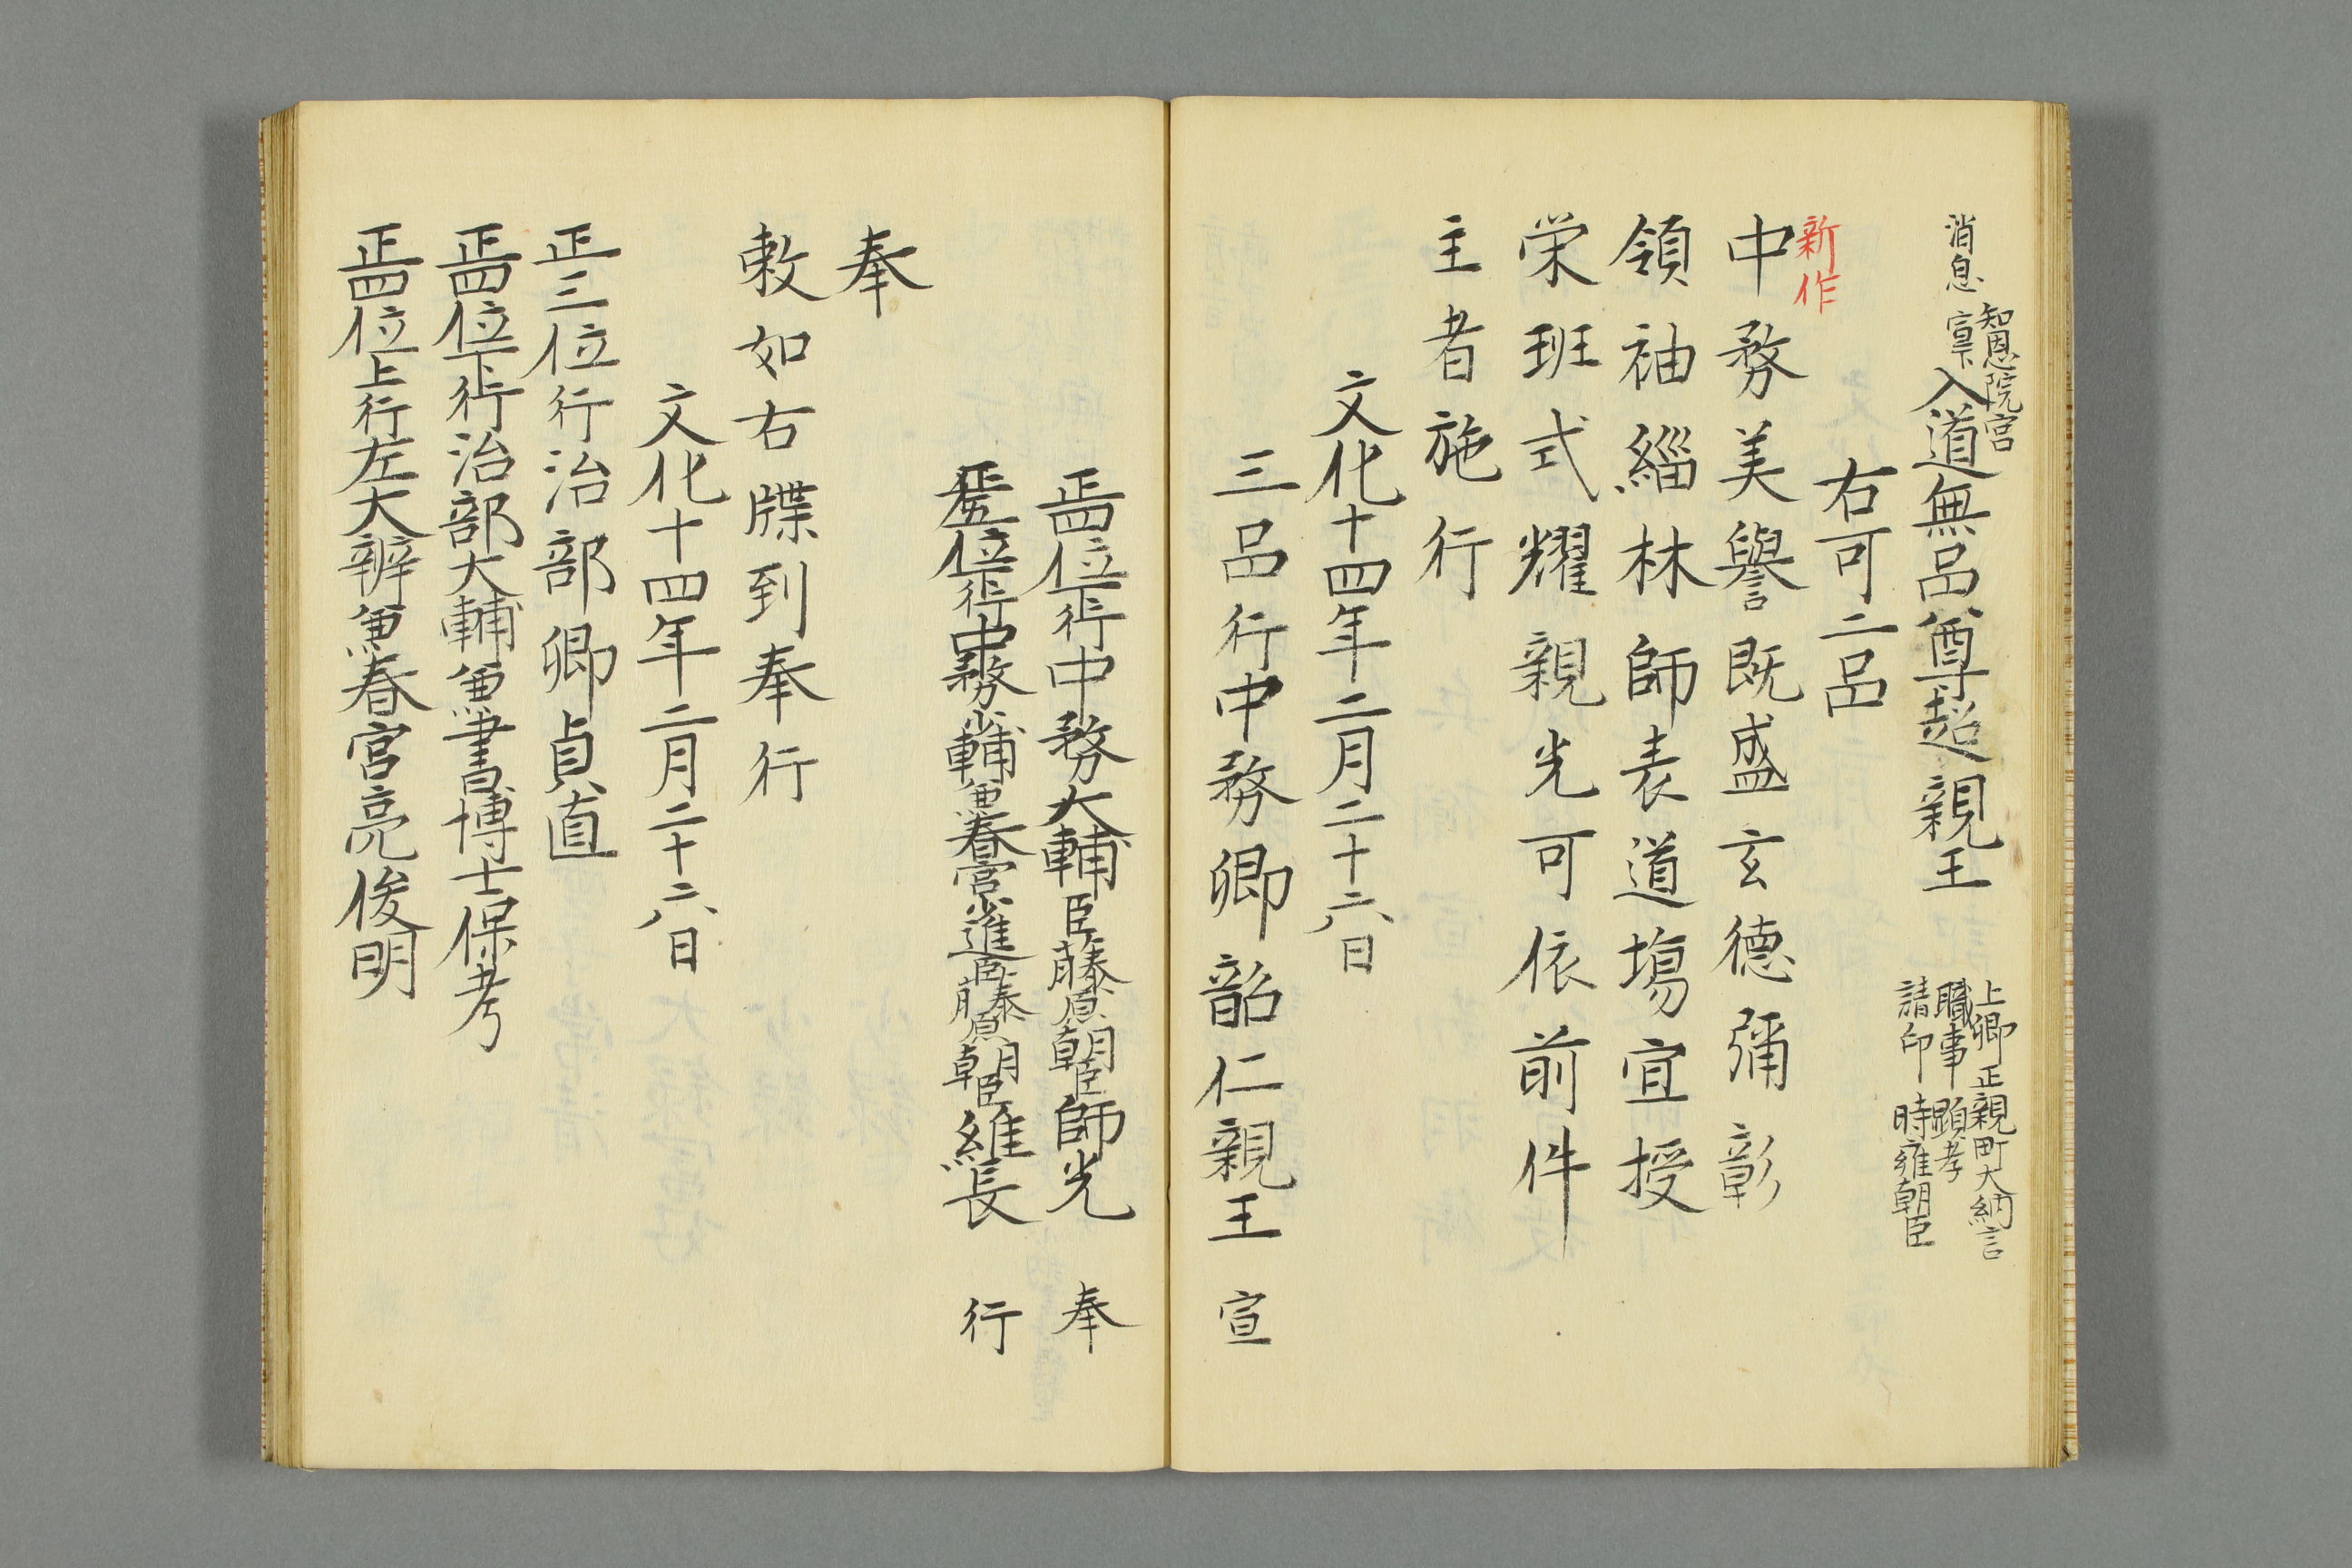 消息
宣下
知恩院宮
入道無品尊超親王
上卿 正親町大納言
職事 顕孝
請印 時雍朝臣
右可二品
新作
中務美譽既盛玄德彌彰
領袖緇林師表道場宜授
栄班式耀親光可依前件
主者施行
文化十四年二月二十六日
三品行中務卿韶仁親王 宣
正四位下行中務大輔臣藤原朝臣師光 奉
從五位下行中務少輔兼春宮少進臣藤原朝臣維長 行
奉
敕如右牒到奉行
文化十四年二月二十六日
正三位行治部卿貞直
正四位下行治部大輔兼書博士保考
正四位上行左大辨兼春宮亮俊明